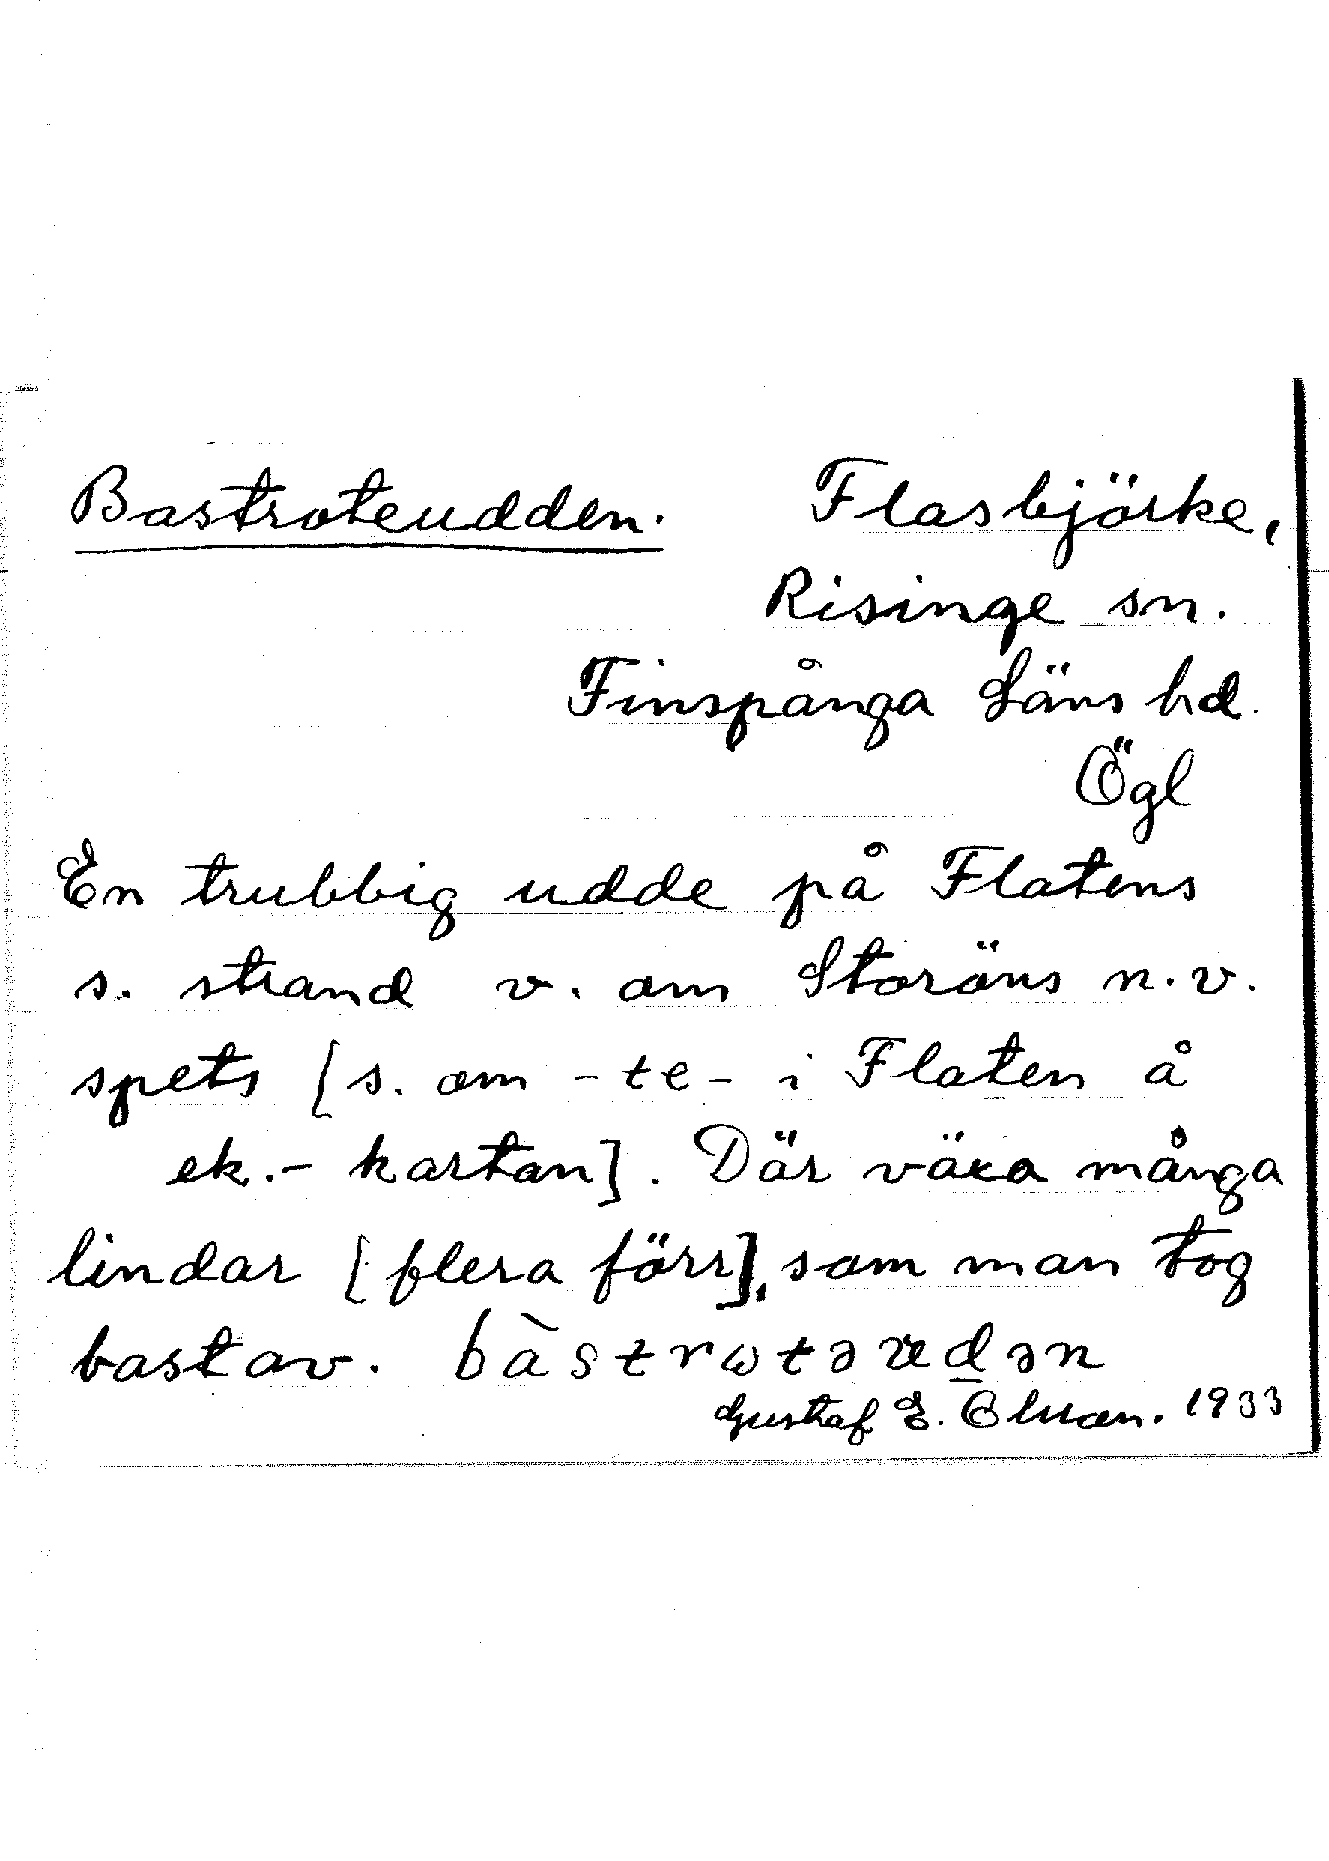 Bastroteudden. Flasbjörke,
Risinge sn.
Finspånga Läns hd.
Ögl
En trubbig udde på Flatens
s. strand v. om Storöns n.v.
spets [s. om -te- i Flaten å
ek.- kartan]. Där växa många
lindar [flera förr], som man tog
bast av. bàstrɷtəʉdən
Gustaf E. 1933